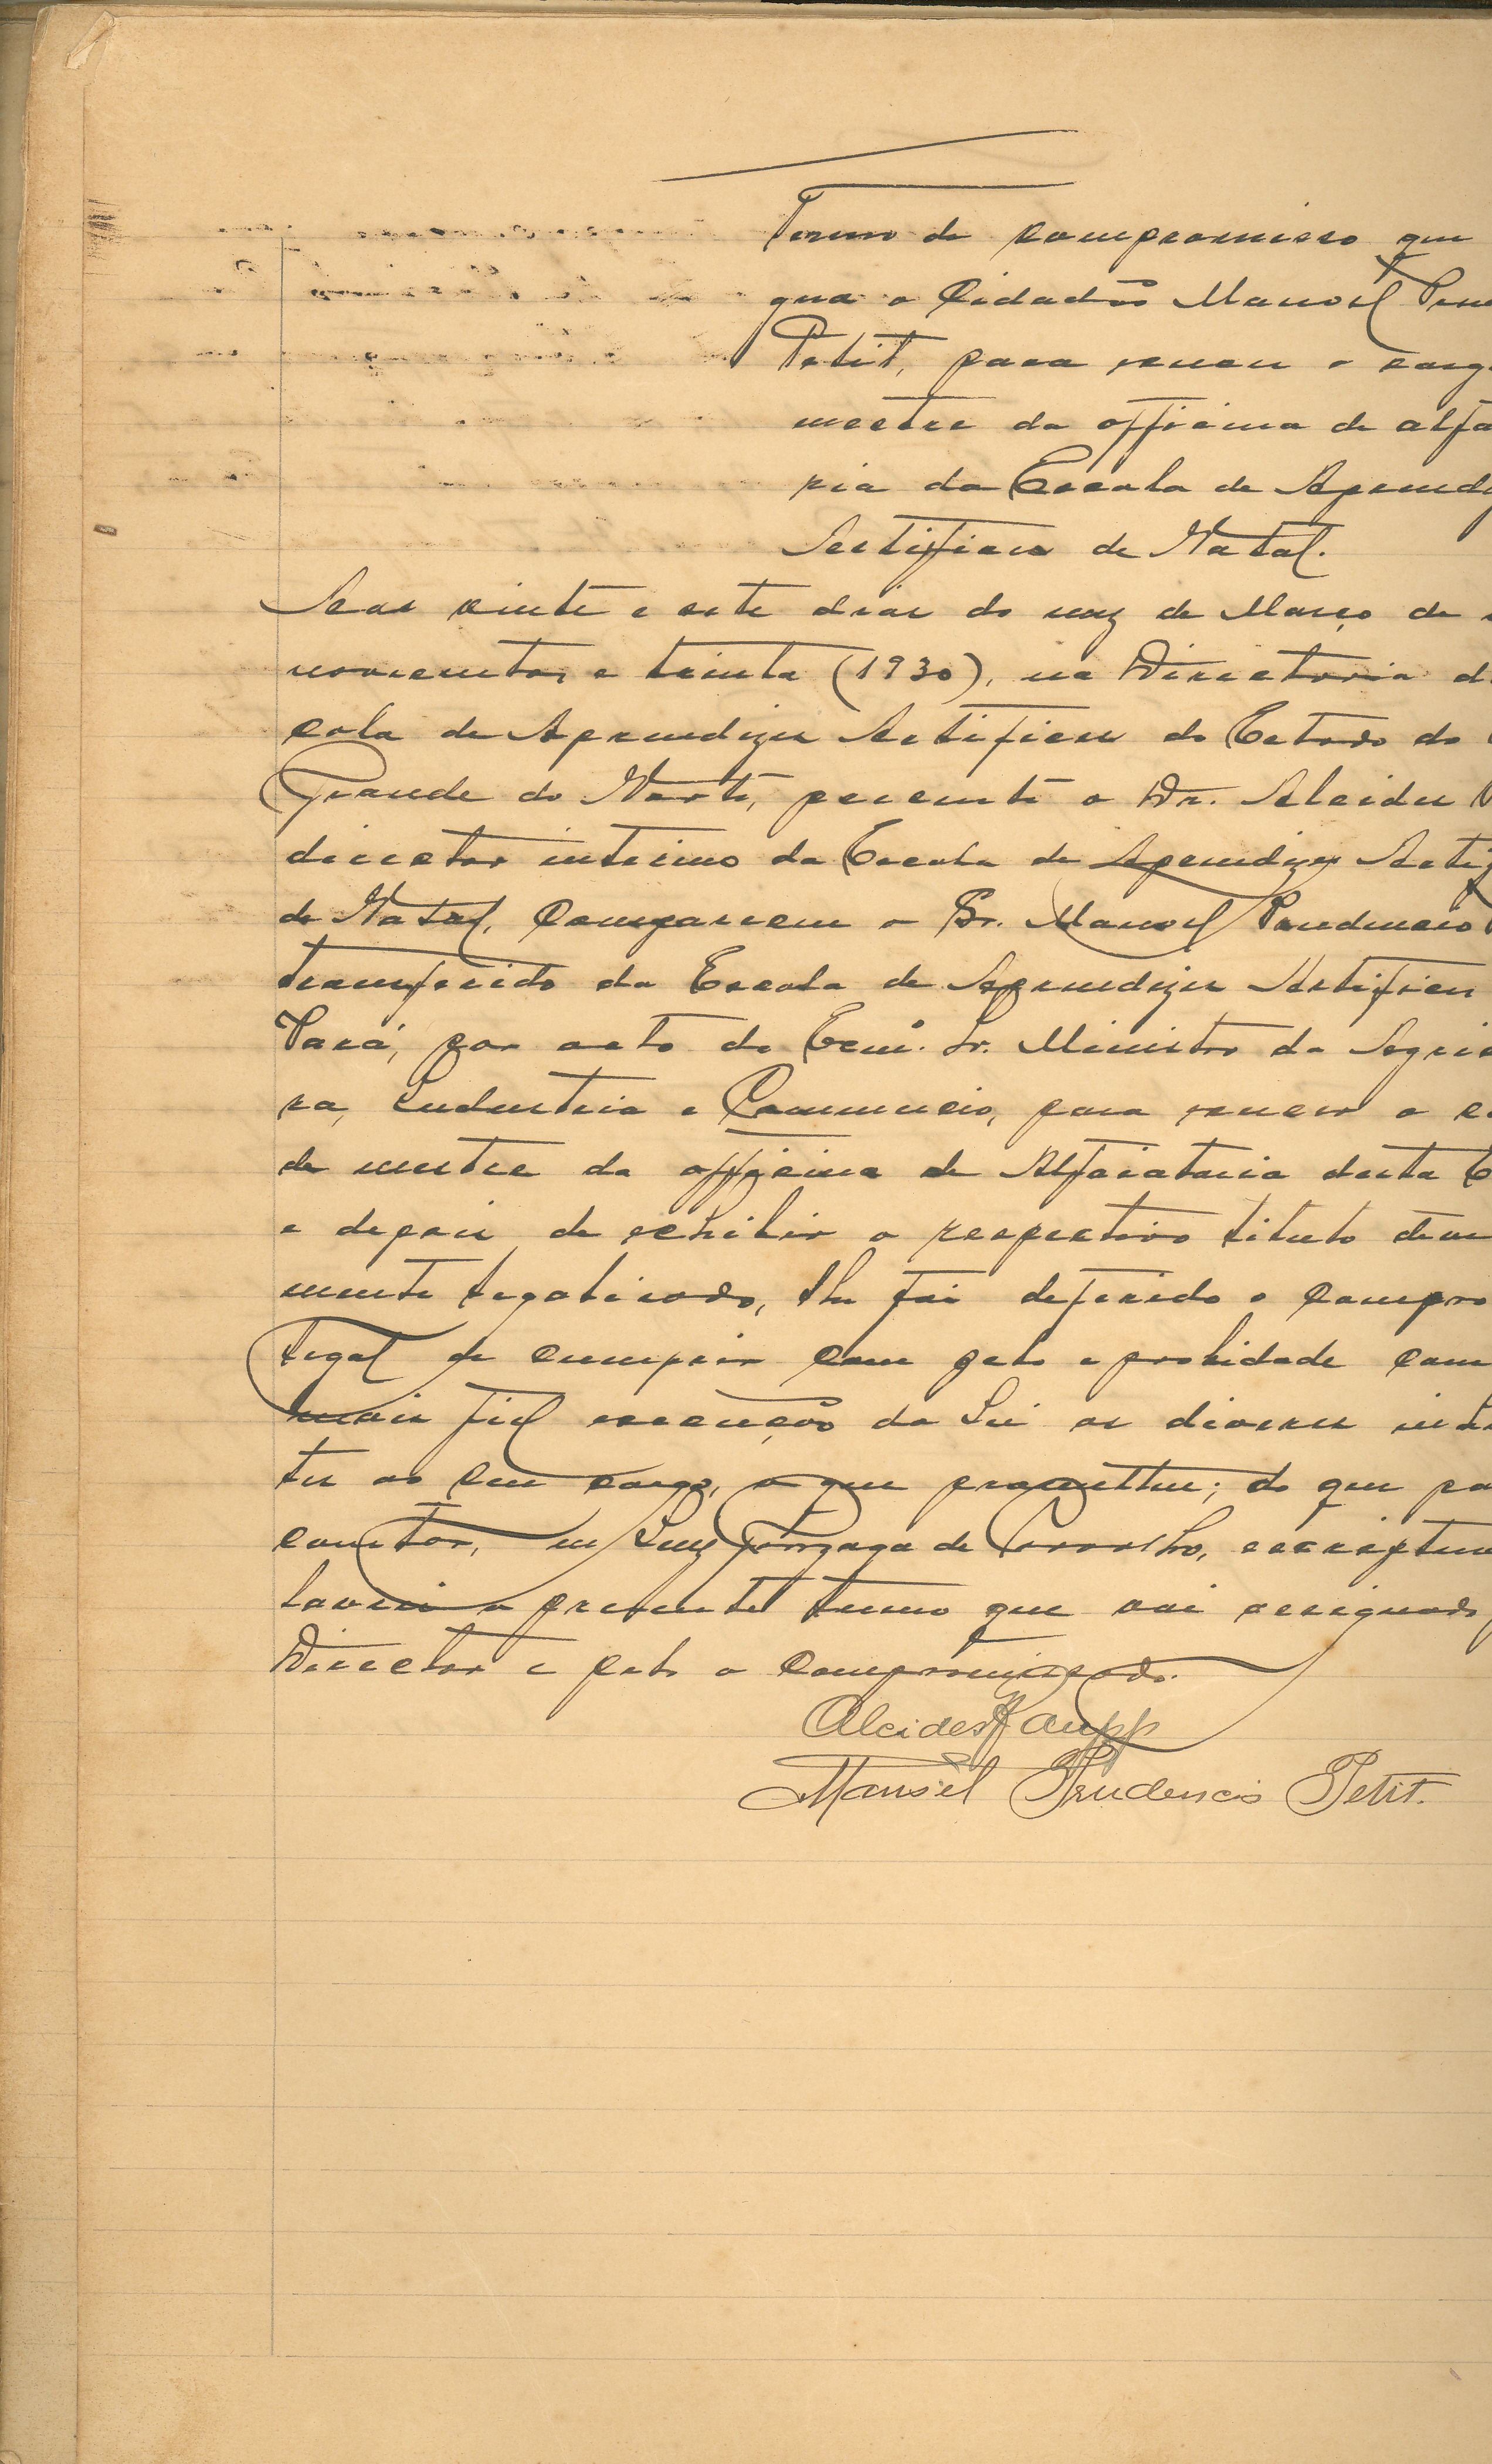 Termo de compromisso que
gna o Cidadão Manoel Pru
Petit, para exercer o carg
mestre da officina de alfa
ria da Escola de Aprendiz
Artifices de Natal.
Aos vinte e sete dias do mez de Março de
novecentos e trinta (1930), na Directoria d
cola de Aprendizes Artifices do Estado do
Grande do Norte, perante o Dr. Alcides
director interino da Escola de Aprendizes Artif
de Natal, compareceu o Sr. Manoel Prudencio
transferido da Escola de Aprendizes Artifices
Pará, por acto do Exmº. Sr. Ministro da Agric
ra, Industria e Commercio, para exercer o c
de mestre da officina de Alfaiataria desta E
e depois de exhibir o respectivo titulo devi
mente legalisado, lhe foi deferido o compro
legal de cumprir com zelo e probidade com
mais fiel execução da Lei os diversos
tes ao seu cargo, o que prometteu; do que pa
constar, eu Luiz Gonzaga de Carvalho, escriptu
lavrei o presente termo que vai assignado p
Director e pelo o compromissado.
Alcides Raupp
Manoel Prudencio Petit.